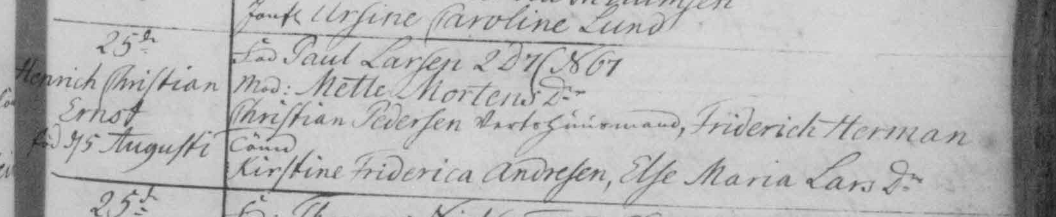 Jomf. Ursine Caroline Lund
25de
Henrich Christian
Ernst
fød Augusti
Fad Paul Larsen 2 D 7 C No 67
Mod: Mette Mortens Dr
Christian Pedersen Vertshuusmand, Friderich Herman
Kirstine Friderica Andresen, Else Maria Lars Dr
25de